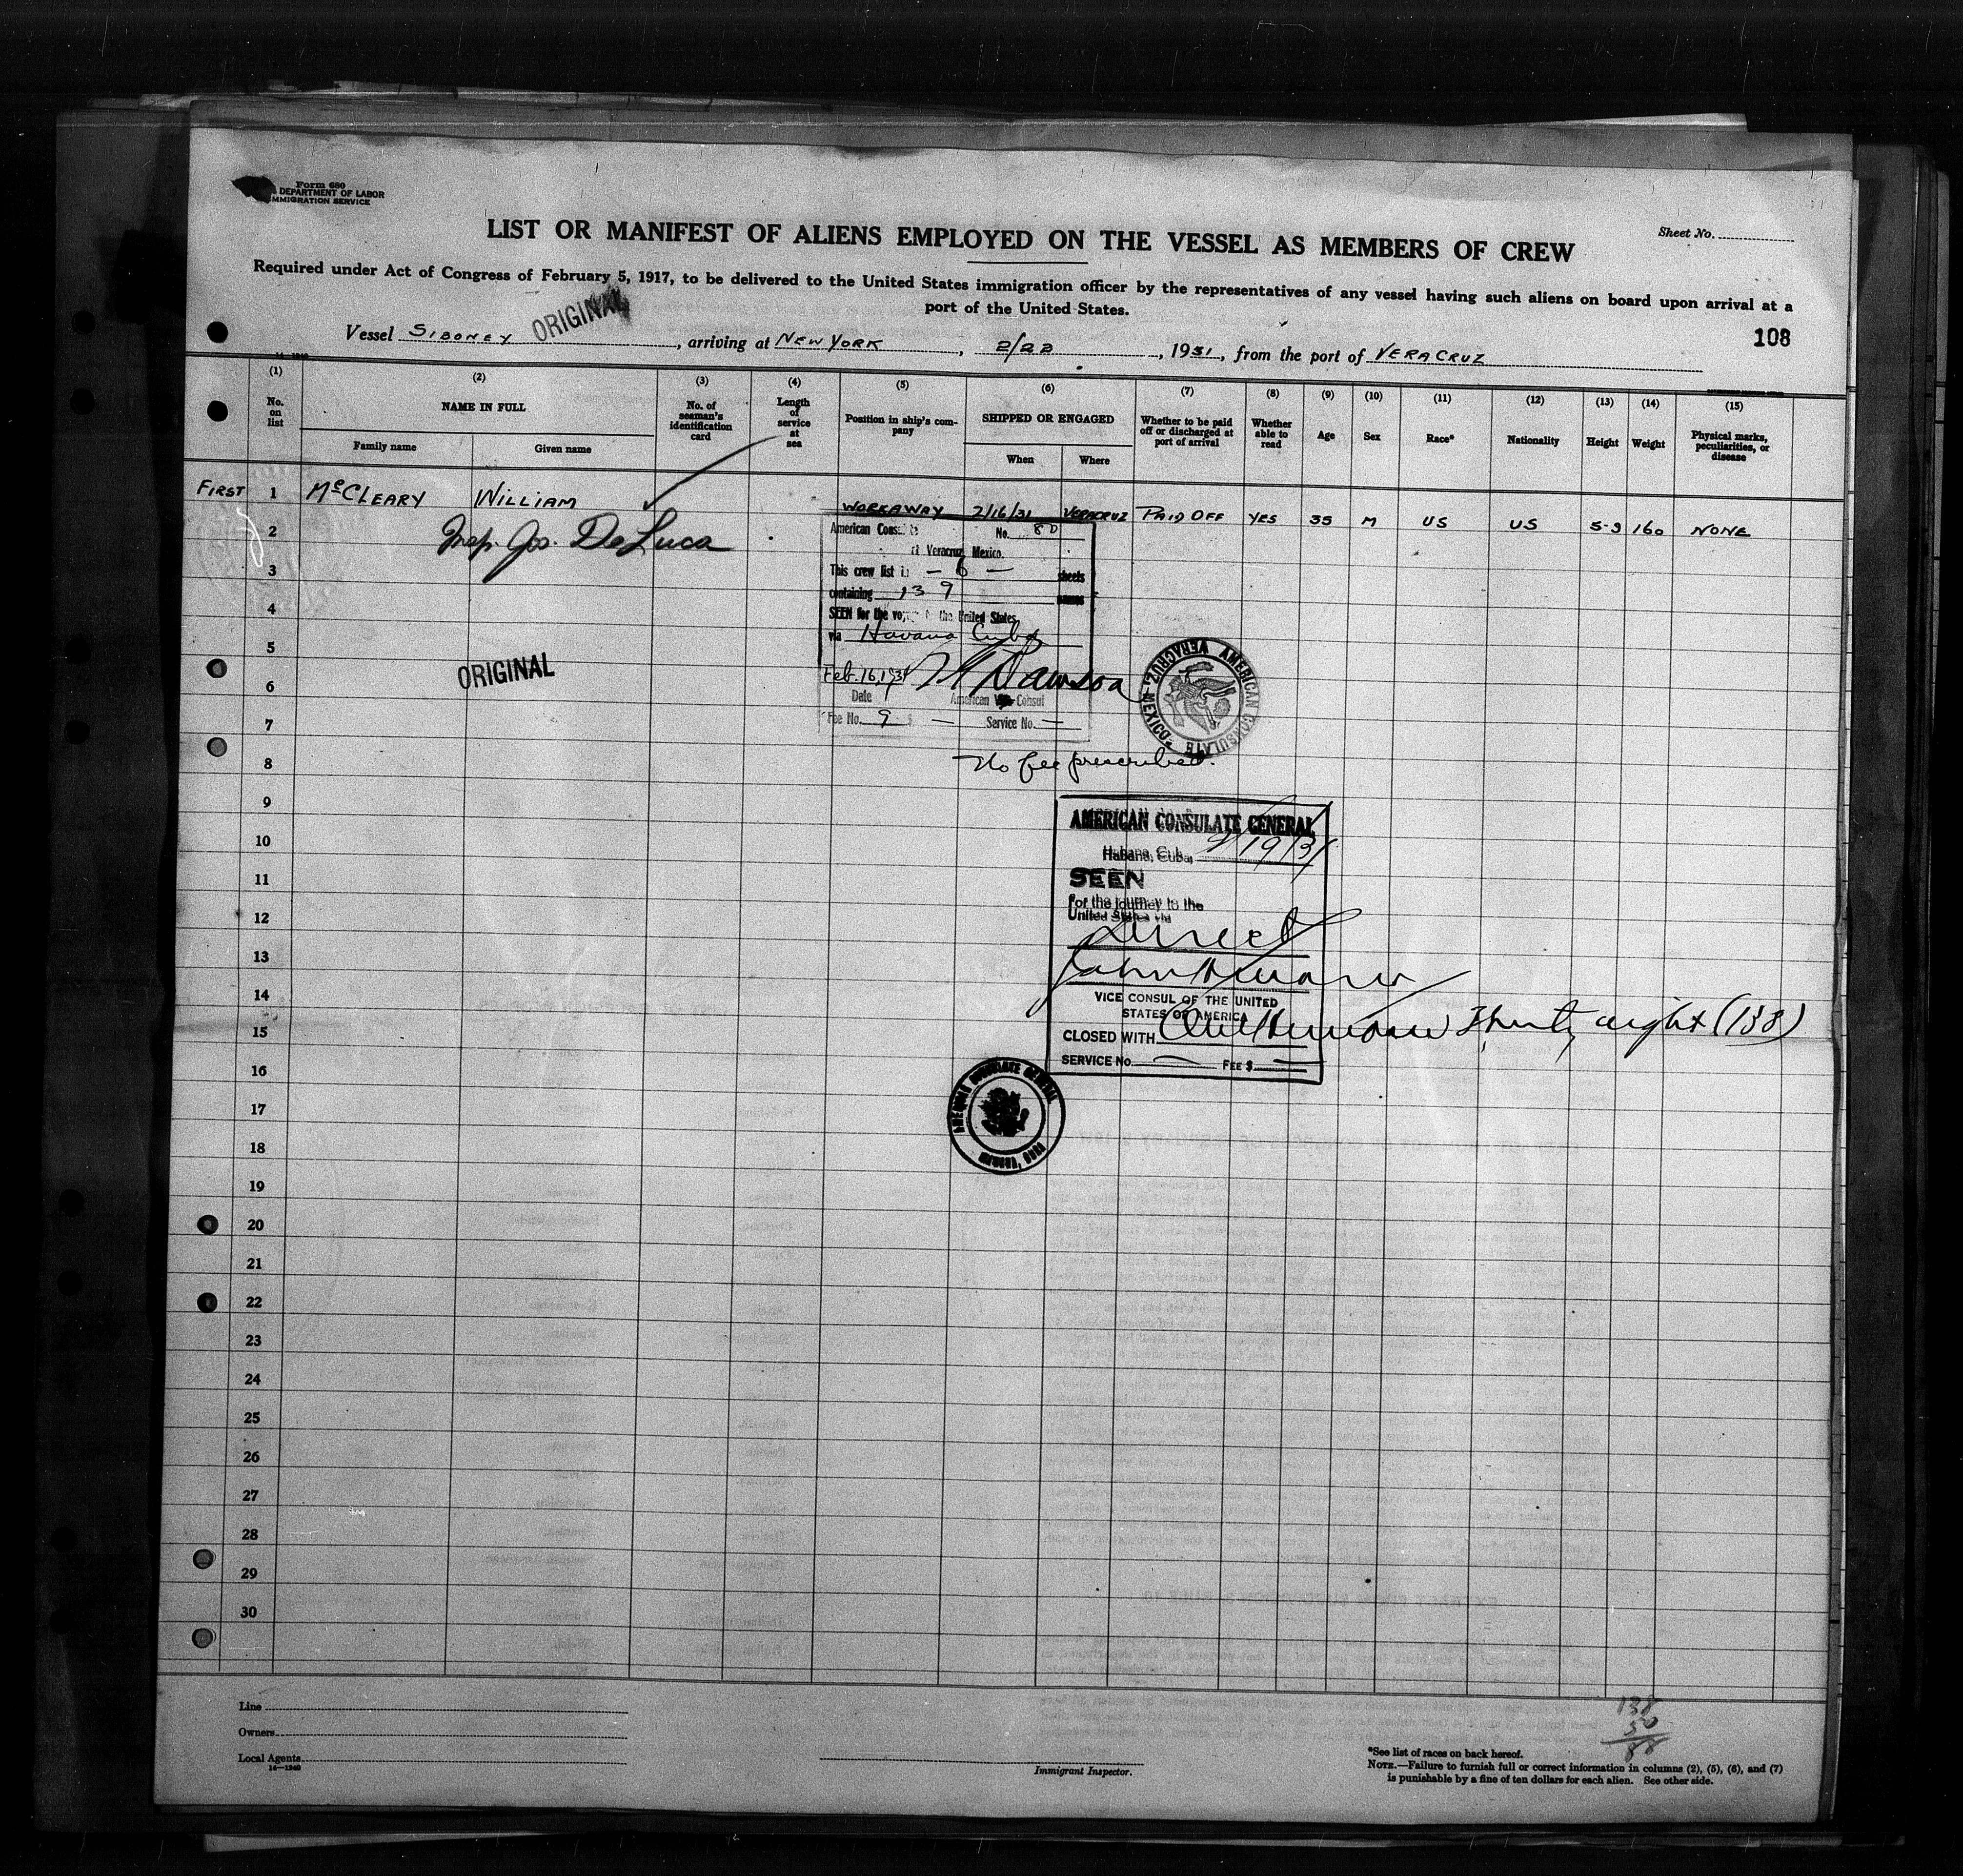 Form 680
DEPARTMENT OF LABOR
IMMIGRATION SERVICE
Sheet No.
LIST OR MANIFEST OF ALIENS EMPLOYED ON THE VESSEL AS MEMBERS OF CREW
Required under Act of Congress of February 5, 1917, to be delivered to the United States immigration officer by the representatives of any vessel having such aliens on board upon arrival at a
port of the United States.
ORIGINAL
108
Vessel SIBONEY, arriving at NEW YORK, 2/22, 1931, from the port of VERA CRUZ
(1) (2) (3) (4) (5) (6) (7) (8) (9) (10) (11) (12) (13) (14) (15)
No. on list
NAME IN FULL
Family name
Given name
No. of seaman's identification card
Length of service at sea
Position in ship's company
SHIPPED OR ENGAGED
When
Where
Whether to be paid off or discharged at port of arrival
Whether able to read
Age
Sex
Race*
Nationality
Height
Weight
Physical marks, peculiarities, or disease
FIRST 1 McCLEARY WILLIAM WORKAWAY 2/16/31 VERACRUZ PAID OFF YES 35 M US US 5-9 160 NONE
2 Insp. Jos. DeLuca
3
4
5
6
7
8
9
10
11
12
13
14
15
16
17
18
19
20
21
22
23
24
25
26
27
28
29
30
ORIGINAL
American No. 80
Veracruz, Mexico.
This crew list - 6 - sheets
containing 139 names
SEEN for the the United States
via Havana Cuba
Feb. 16, 1931 Dawson
Date American Consul
Fee No. 9 $ — Service No. —
AMERICAN CONSULATE VERACRUZ, MEXICO
No fee prescribed.
AMERICAN CONSULATE GENERAL
Habana, Cuba, 2/19/31
SEEN
For the journey to the
United States via
Direct
VICE CONSUL OF THE UNITED
STATES OF AMERICA
CLOSED WITH One Hundred Thirty eight (138)
SERVICE No. — FEE $ —
AMERICAN CONSULATE GENERAL
HAVANA, CUBA
138
50
88
Line
Owners
Local Agents
14—1240
Immigrant Inspector.
*See list of races on back hereof.
NOTE.—Failure to furnish full or correct information in columns (2), (5), (6), and (7)
is punishable by a fine of ten dollars for each alien. See other side.